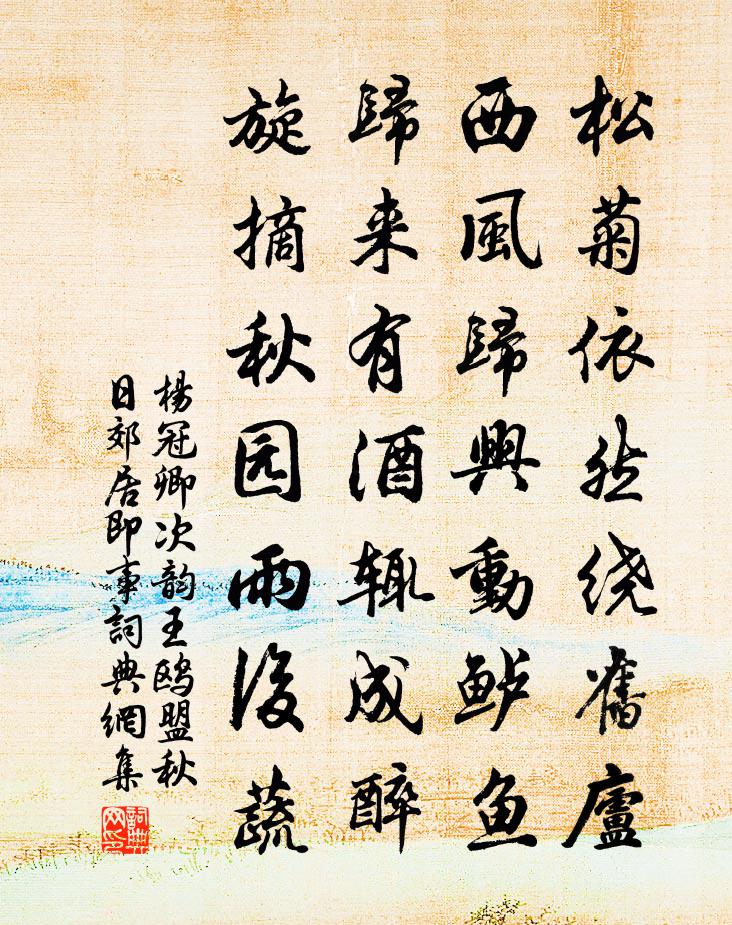 松菊依然绕舊廬
西風歸興動鲈鱼
歸来有酒辄成醉
旋摘秋园雨後蔬
楊冠卿次韵王鸥盟秋
日郊居即事詞典網集
詞典
网印